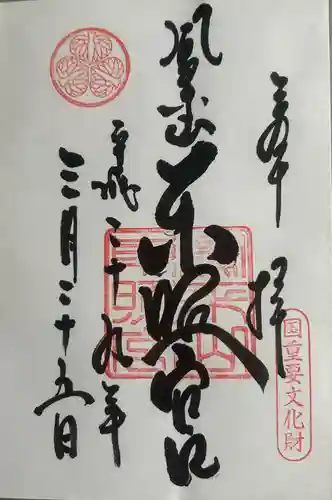 奉拝
国重要文化財
鳳来山東照宮
平成二十九年
三月二十五日